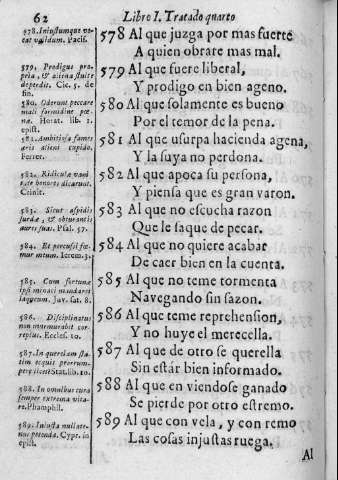 62
Libro I. Tratado quarto
578. Iniustumque vo-
cat validum. Pacif.
579. Prodigus pro-
pria, & aliena stulte
deperdit. Cic. 5. de
fin.
580. Oderunt peccare
mali formidine poe-
næ. Horat. lib. 1.
epist.
581. Ambitiosa fames
aris alieni cupido.
Ferret.
582. Ridiculæ vani-
tate honore
Crinit.
583. Sicut aspidis
surdæ, & obturantis
aures suas. Psal. 57.
584. Et percussi foe-
mur meum. Ierem. 3.
585. Cum fortunæ
ipsi minaci mandaret
laqueum. Juv. sat. 8.
586. Disciplinatus
non murmurabit cor-
reptus. Eccles. 10.
587. In querelam sta-
tim nequis prorum-
pere Stat. lib. 10.
588. In omnibus cura
semper extrema vita-
re. Phamphil.
589. Iniusta nulla te-
nus petenda. Cypr. in
epist.
578 Al que juzga por mas fuerte
A quien obrare mas mal.
579 Al que fuere liberal,
Y prodigo en bien ageno.
580 Al que solamente es bueno
Por el temor de la pena.
581 Al que usurpa hacienda agena,
Y la suya no perdona.
582 Al que apoca su persona,
Y piensa que es gran varon.
583 Al que no escucha razon
Que le saque de pecar.
584 Al que no quiere acabar
De caer bien en la cuenta.
585 Al que no teme tormenta
Navegando sin sazon.
586 Al que teme reprehension,
Y no huye el merecella.
587 Al que de otro se querella
Sin estàr bien informado.
588 Al que en viendose ganado
Se pierde por otro estremo.
589 Al que con vela, y con remo
Las cosas injustas ruega.
Al